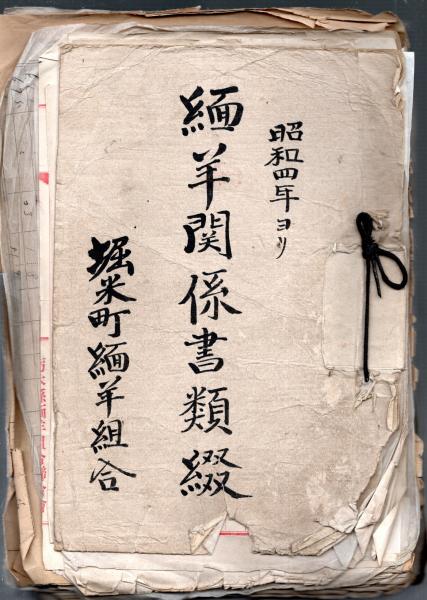 昭和四年ヨリ
緬羊関係書類綴
堀米町緬羊組合